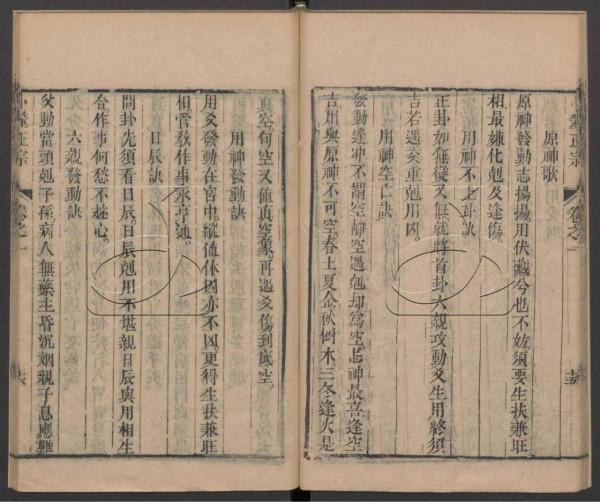 原神歌
原神發動志揚揚用伏藏兮也不妨須要生扶兼旺
相最嫌化剋及逢傷。
用神不上卦訣
正卦如無變又無就將首卦六親攻動爻生用終須
吉若遇爻重剋用凶。
用神空亡訣
發動逢冲不謂空靜空遇剋却為空忌神最喜逢空
吉用與原神不可空春土夏金秋樹木三冬逢火是
卜筮正宗
卷之一
十五
真空旬空又值真空象再遇爻傷到底空。
用神發動訣
用爻發動在宮中縱值休囚亦不凶更得生扶兼旺
相管教作事永亨通。
日辰訣
問卦先須看日辰日辰剋用不堪親日辰與用相生
合作事何愁不趁心。
六親發動訣
父動當頭剋子孫病人無藥主昏沉姻親子息應難
卜筮正宗
卷之一